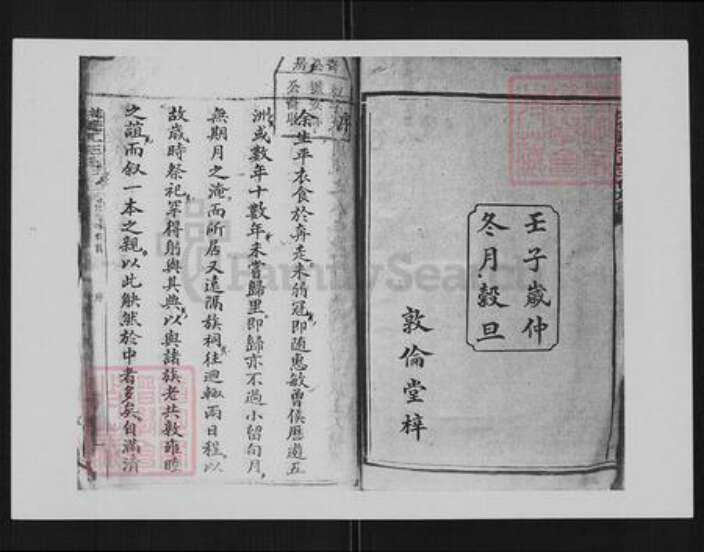 壬子歲仲
冬月穀旦
敦倫堂梓
序
余生平衣食於奔走未弱冠即隨惠敏曾侯歷遊五
洲或數年十數年未嘗歸里即歸亦不過小留旬月
無期月之淹而所居又遠隔族祠往迴輒兩日程以
故歲時祭祀罕得躬與其典以與諸族老共敦雍睦
之誼而叙一本之親以此觖然於中者多矣自滿清
FamilySearch